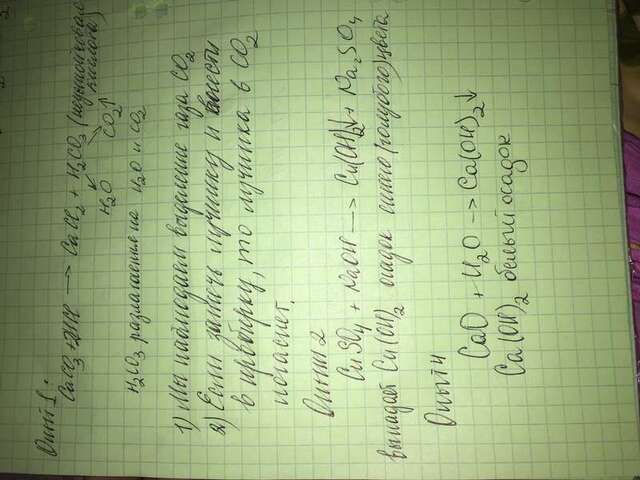 Опыт 1:
CaCO3 + 2HCl → CaCl2 + H2CO3 (неустойчивая
кислота)
H2O CO2↑
H2CO3 разлагается на H2O и CO2
1) Мы наблюдаем выделение газа CO2
2) Если зажечь лучинку и внести
в пробирку, то лучинка в CO2
погаснет.
Опыт 2
CuSO4 + NaOH → Cu(OH)2↓ + Na2SO4
выпадает Cu(OH)2 осадок синего (голубого) цвета
Опыт 4
CaO + H2O → Ca(OH)2↓
Ca(OH)2 белый осадок